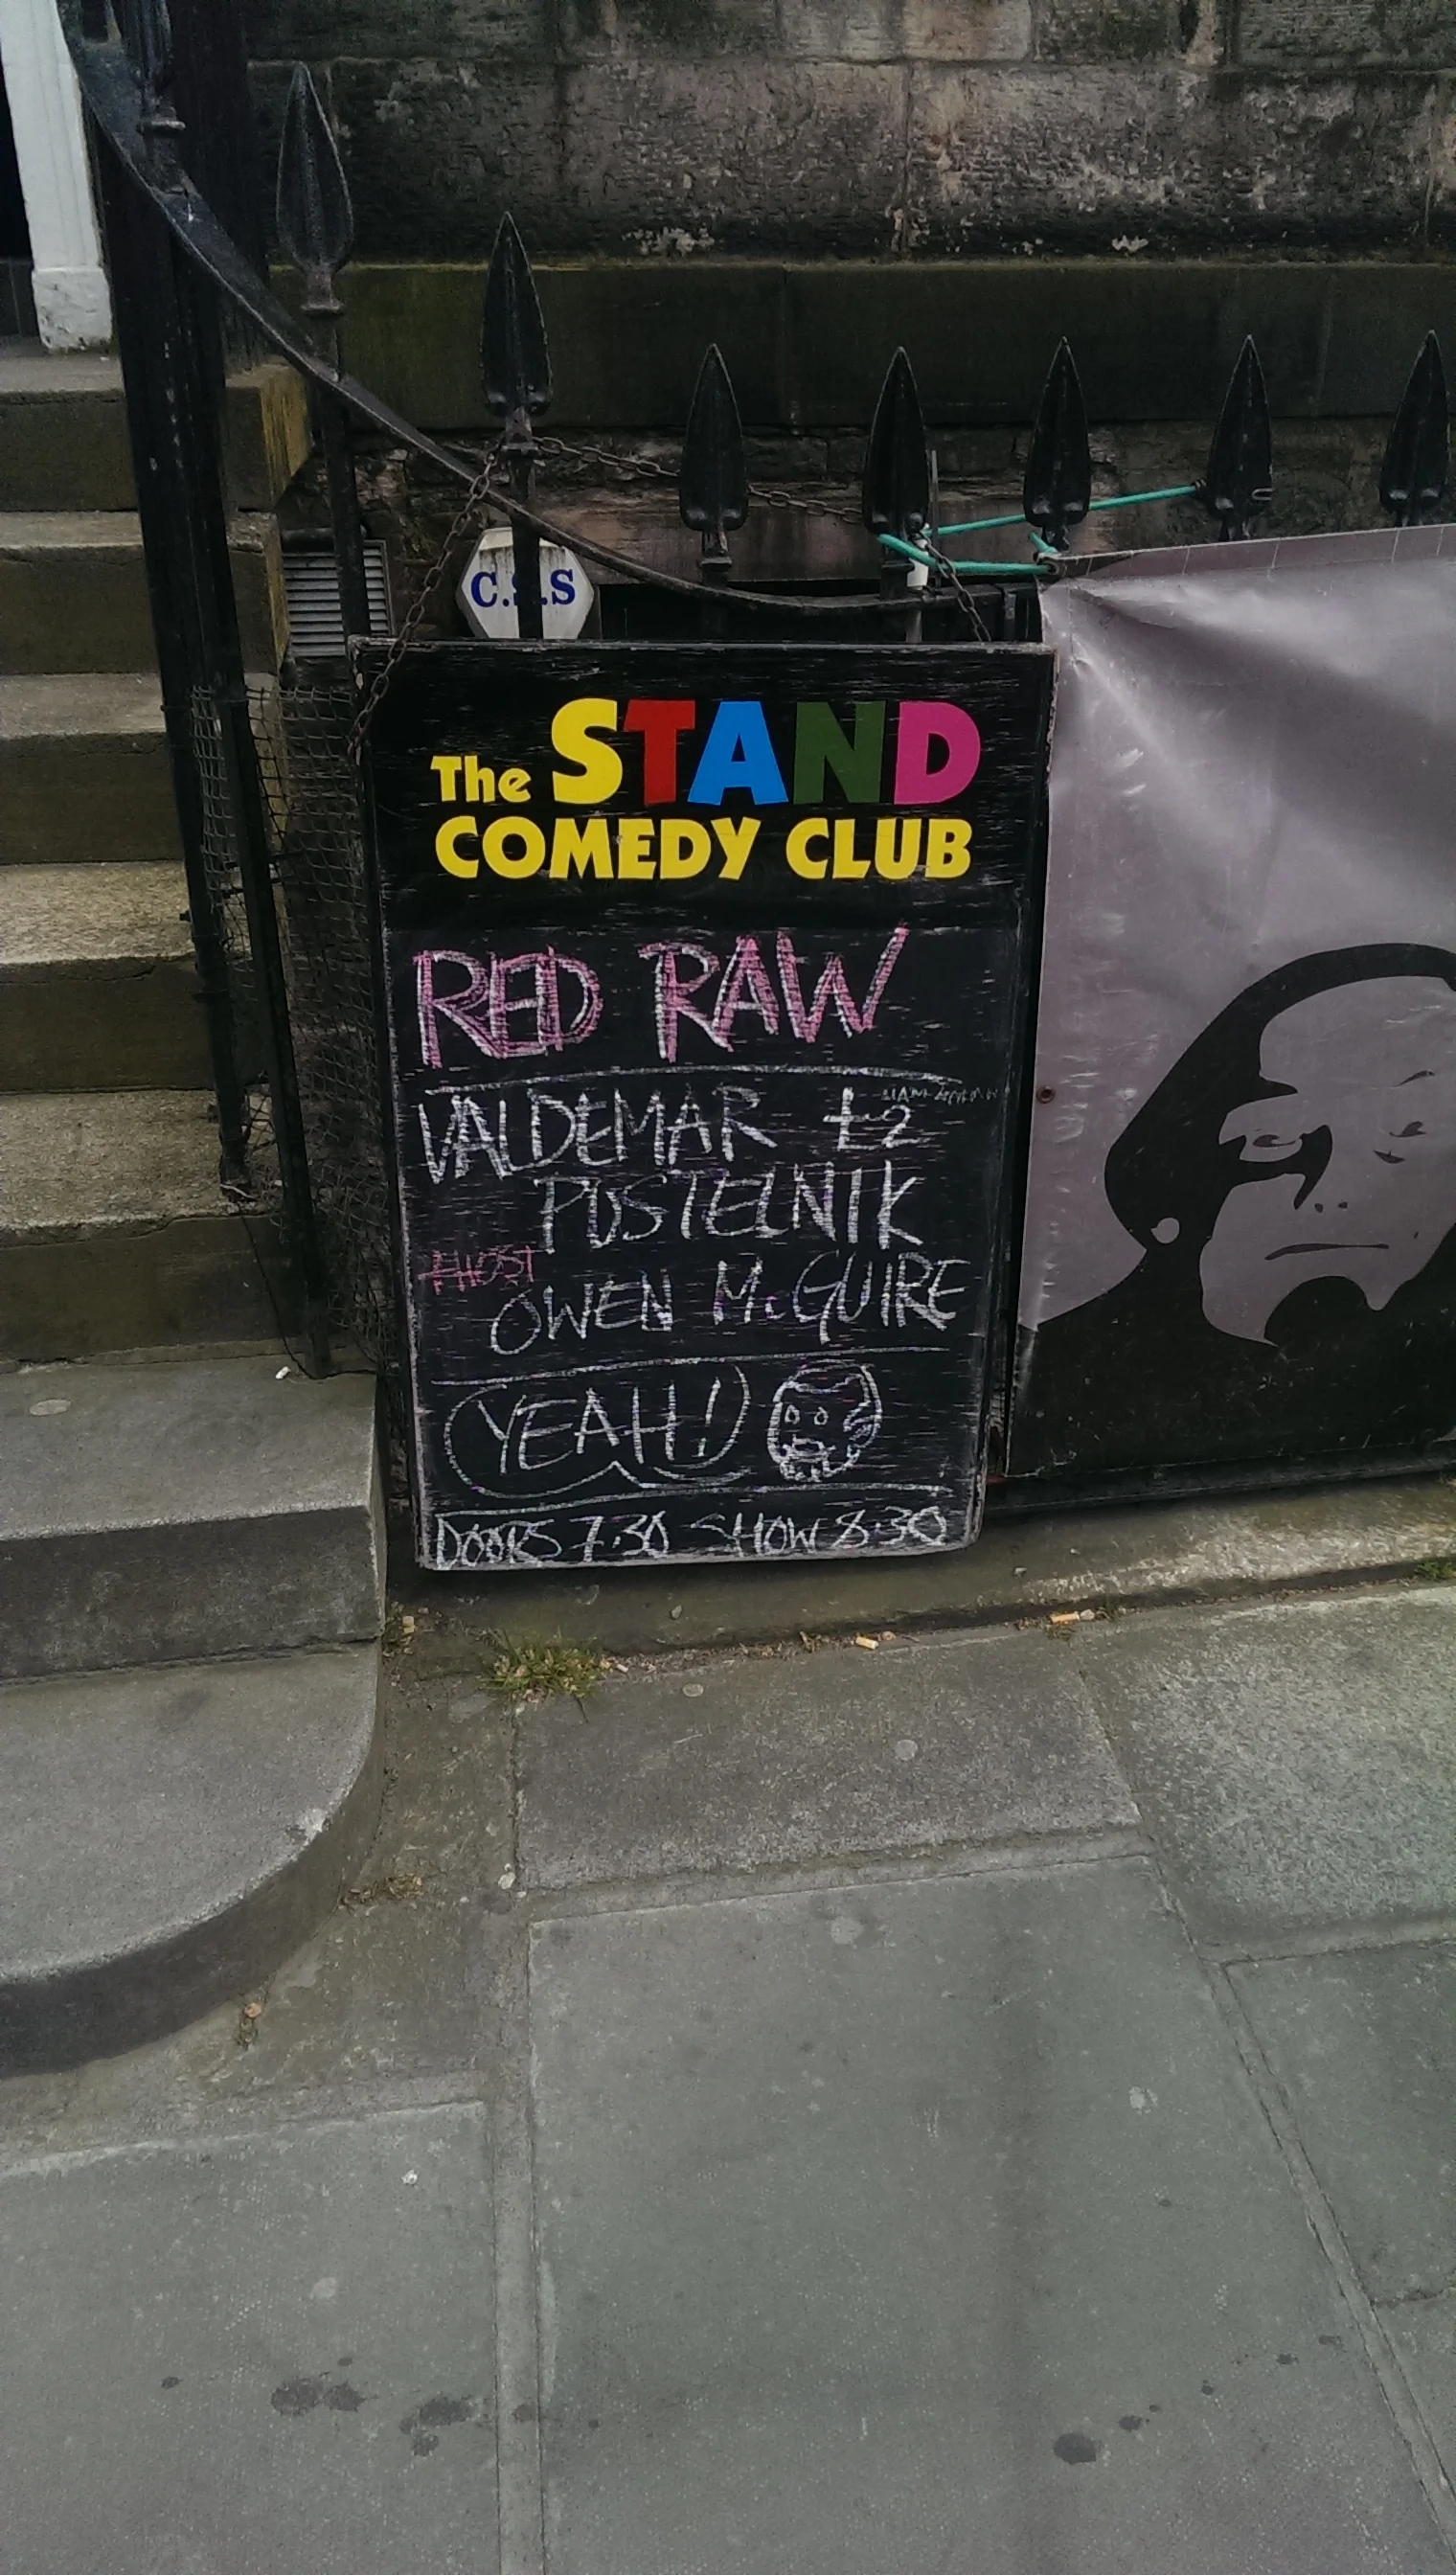 C.S.S
The STAND
COMEDY CLUB
RED RAW
VALDEMAR £2
PUSTELNIK
+HOST
OWEN McGUIRE
YEAH!
DOORS 7.30 SHOW 8.30